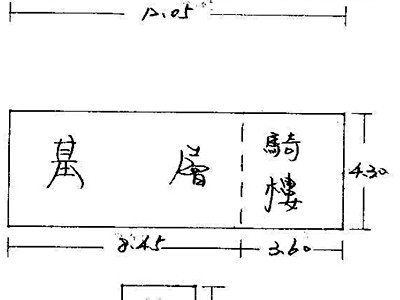 12.05
基層 騎樓
4.30
8.45 3.60